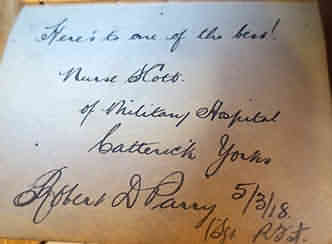 Here's to one of the best!
Nurse Scott.
of Military Hospital
Catterick Yorks
Robert D Parry 5/3/18.